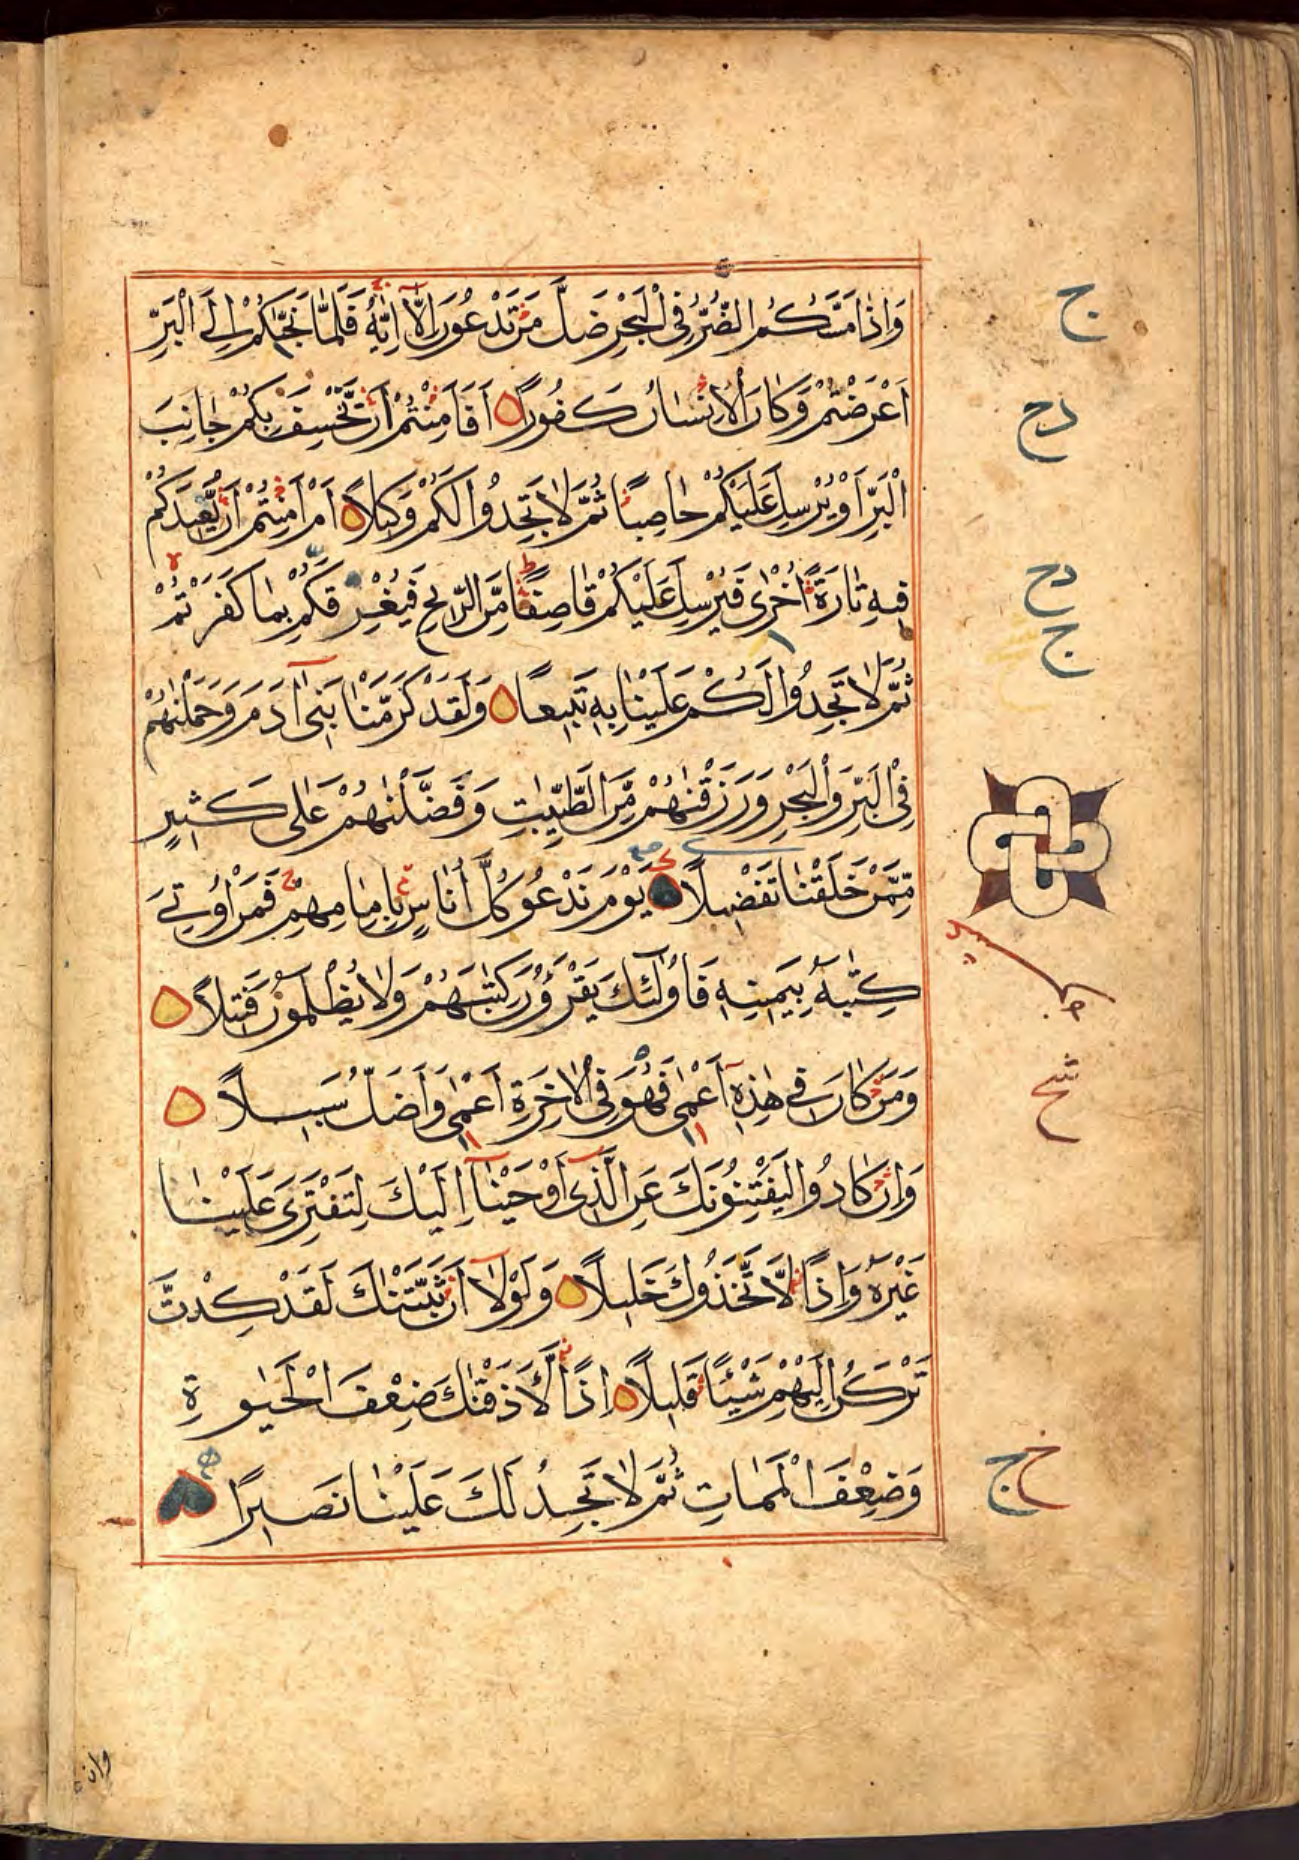 وَاِذَا مَسَّكُمُ الضُّرُّ فِى الْبَحْرِ ضَلَّ مَنْ تَدْعُونَ اِلَّآ اِيَّاهُ فَلَمَّا نَجّٰىكُمْ اِلَى الْبَرِّ
اَعْرَضْتُمْ وَكَانَ الْاِنْسَانُ كَفُورًا اَفَاَمِنْتُمْ اَنْ يَّخْسِفَ بِكُمْ جَانِبَ
الْبَرِّ اَوْ يُرْسِلَ عَلَيْكُمْ حَاصِبًا ثُمَّ لَا تَجِدُوا لَكُمْ وَكِيلًا اَمْ اَمِنْتُمْ اَنْ يُّعِيدَكُمْ
فِيهِ تَارَةً اُخْرٰى فَيُرْسِلَ عَلَيْكُمْ قَاصِفًا مِّنَ الرِّيحِ فَيُغْرِقَكُمْ بِمَا كَفَرْتُمْ
ثُمَّ لَا تَجِدُوا لَكُمْ عَلَيْنَا بِهِ تَبِيعًا وَلَقَدْ كَرَّمْنَا بَنِىٓ اٰدَمَ وَحَمَلْنٰهُمْ
فِى الْبَرِّ وَالْبَحْرِ وَرَزَقْنٰهُمْ مِّنَ الطَّيِّبٰتِ وَفَضَّلْنٰهُمْ عَلٰى كَثِيرٍ
مِّمَّنْ خَلَقْنَا تَفْضِيلًا يَوْمَ نَدْعُو كُلَّ اُنَاسٍ بِاِمَامِهِمْ فَمَنْ اُوتِىَ
كِتٰبَهُ بِيَمِينِهِ فَاُولٰٓئِكَ يَقْرَؤُنَ كِتٰبَهُمْ وَلَا يُظْلَمُونَ فَتِيلًا
وَمَنْ كَانَ فِى هٰذِهِٓ اَعْمٰى فَهُوَ فِى الْاٰخِرَةِ اَعْمٰى وَاَضَلُّ سَبِيلًا
وَاِنْ كَادُوا لَيَفْتِنُونَكَ عَنِ الَّذِىٓ اَوْحَيْنَآ اِلَيْكَ لِتَفْتَرِىَ عَلَيْنَا
غَيْرَهُ وَاِذًا لَّاتَّخَذُوكَ خَلِيلًا وَلَوْلَآ اَنْ ثَبَّتْنٰكَ لَقَدْ كِدْتَّ
تَرْكَنُ اِلَيْهِمْ شَيْئًا قَلِيلًا اِذًا لَّاَذَقْنٰكَ ضِعْفَ الْحَيٰوةِ
وَضِعْفَ الْمَمَاتِ ثُمَّ لَا تَجِدُ لَكَ عَلَيْنَا نَصِيرًا
وان